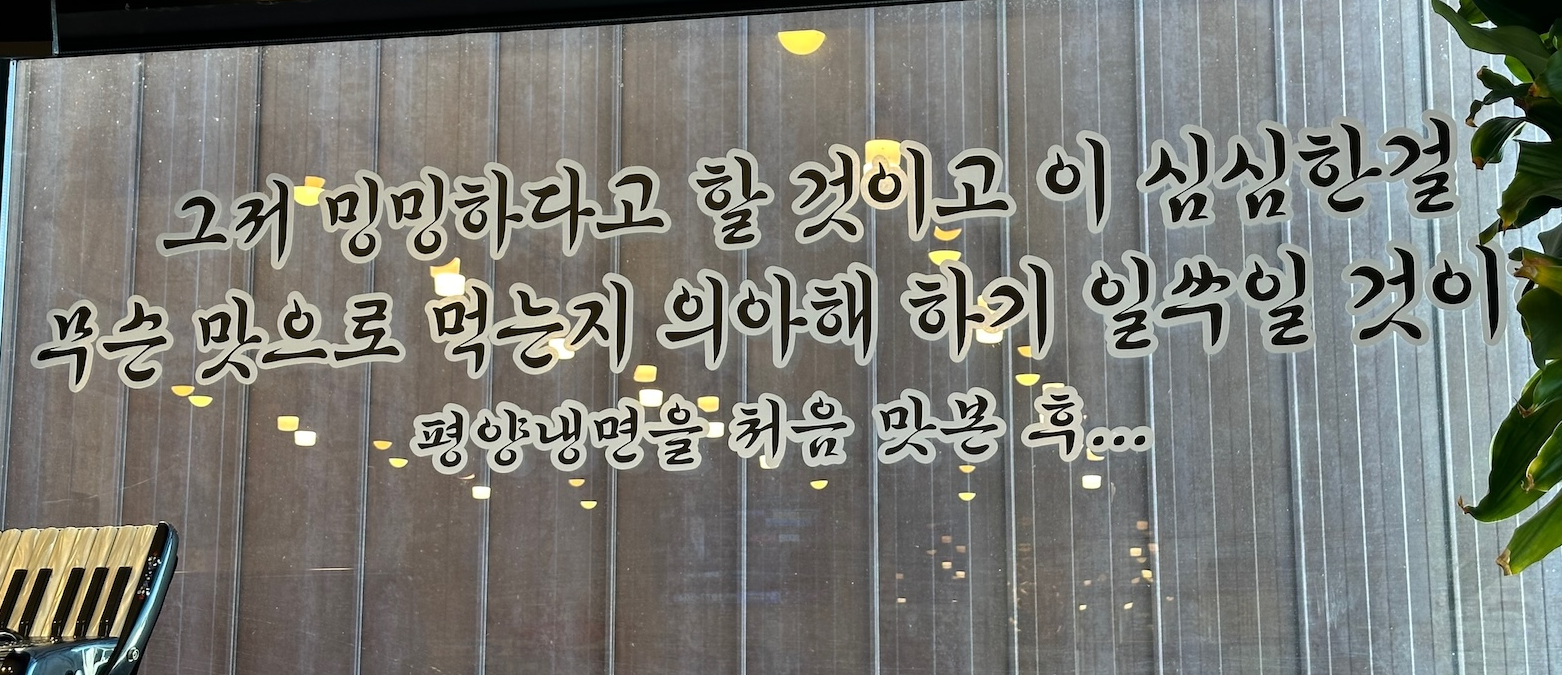 그저 밍밍하다고 할 것이고 이 심심한걸
무슨 맛으로 먹는지 의아해 하기 일쑤일 것이
평양냉면을 처음 맛본 후...